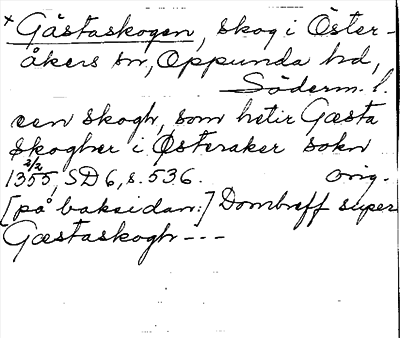 × Gåstaskogen, skog i Öster-
åkers sn, Oppunda hd,
Söderm. l.
een skogh, som hetir Gæsta
skogher i Østeraker sokn
1355 2/2, SD 6, s. 536. orig.
[på baksidan:] Dombreff super
Gæstaskogh ---